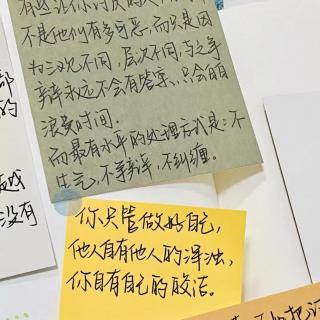 不是他们有多可恶,而只是因
为三观不同,层次不同,与之争
辩永远不会有答案,只会白白
浪费时间.
而最有水平的处理方式是:不
生气,不争辩,不纠缠.
部
的
越
没有
你只管做好自己,
他人自有他人的浑浊,
你自有自己的皎洁.